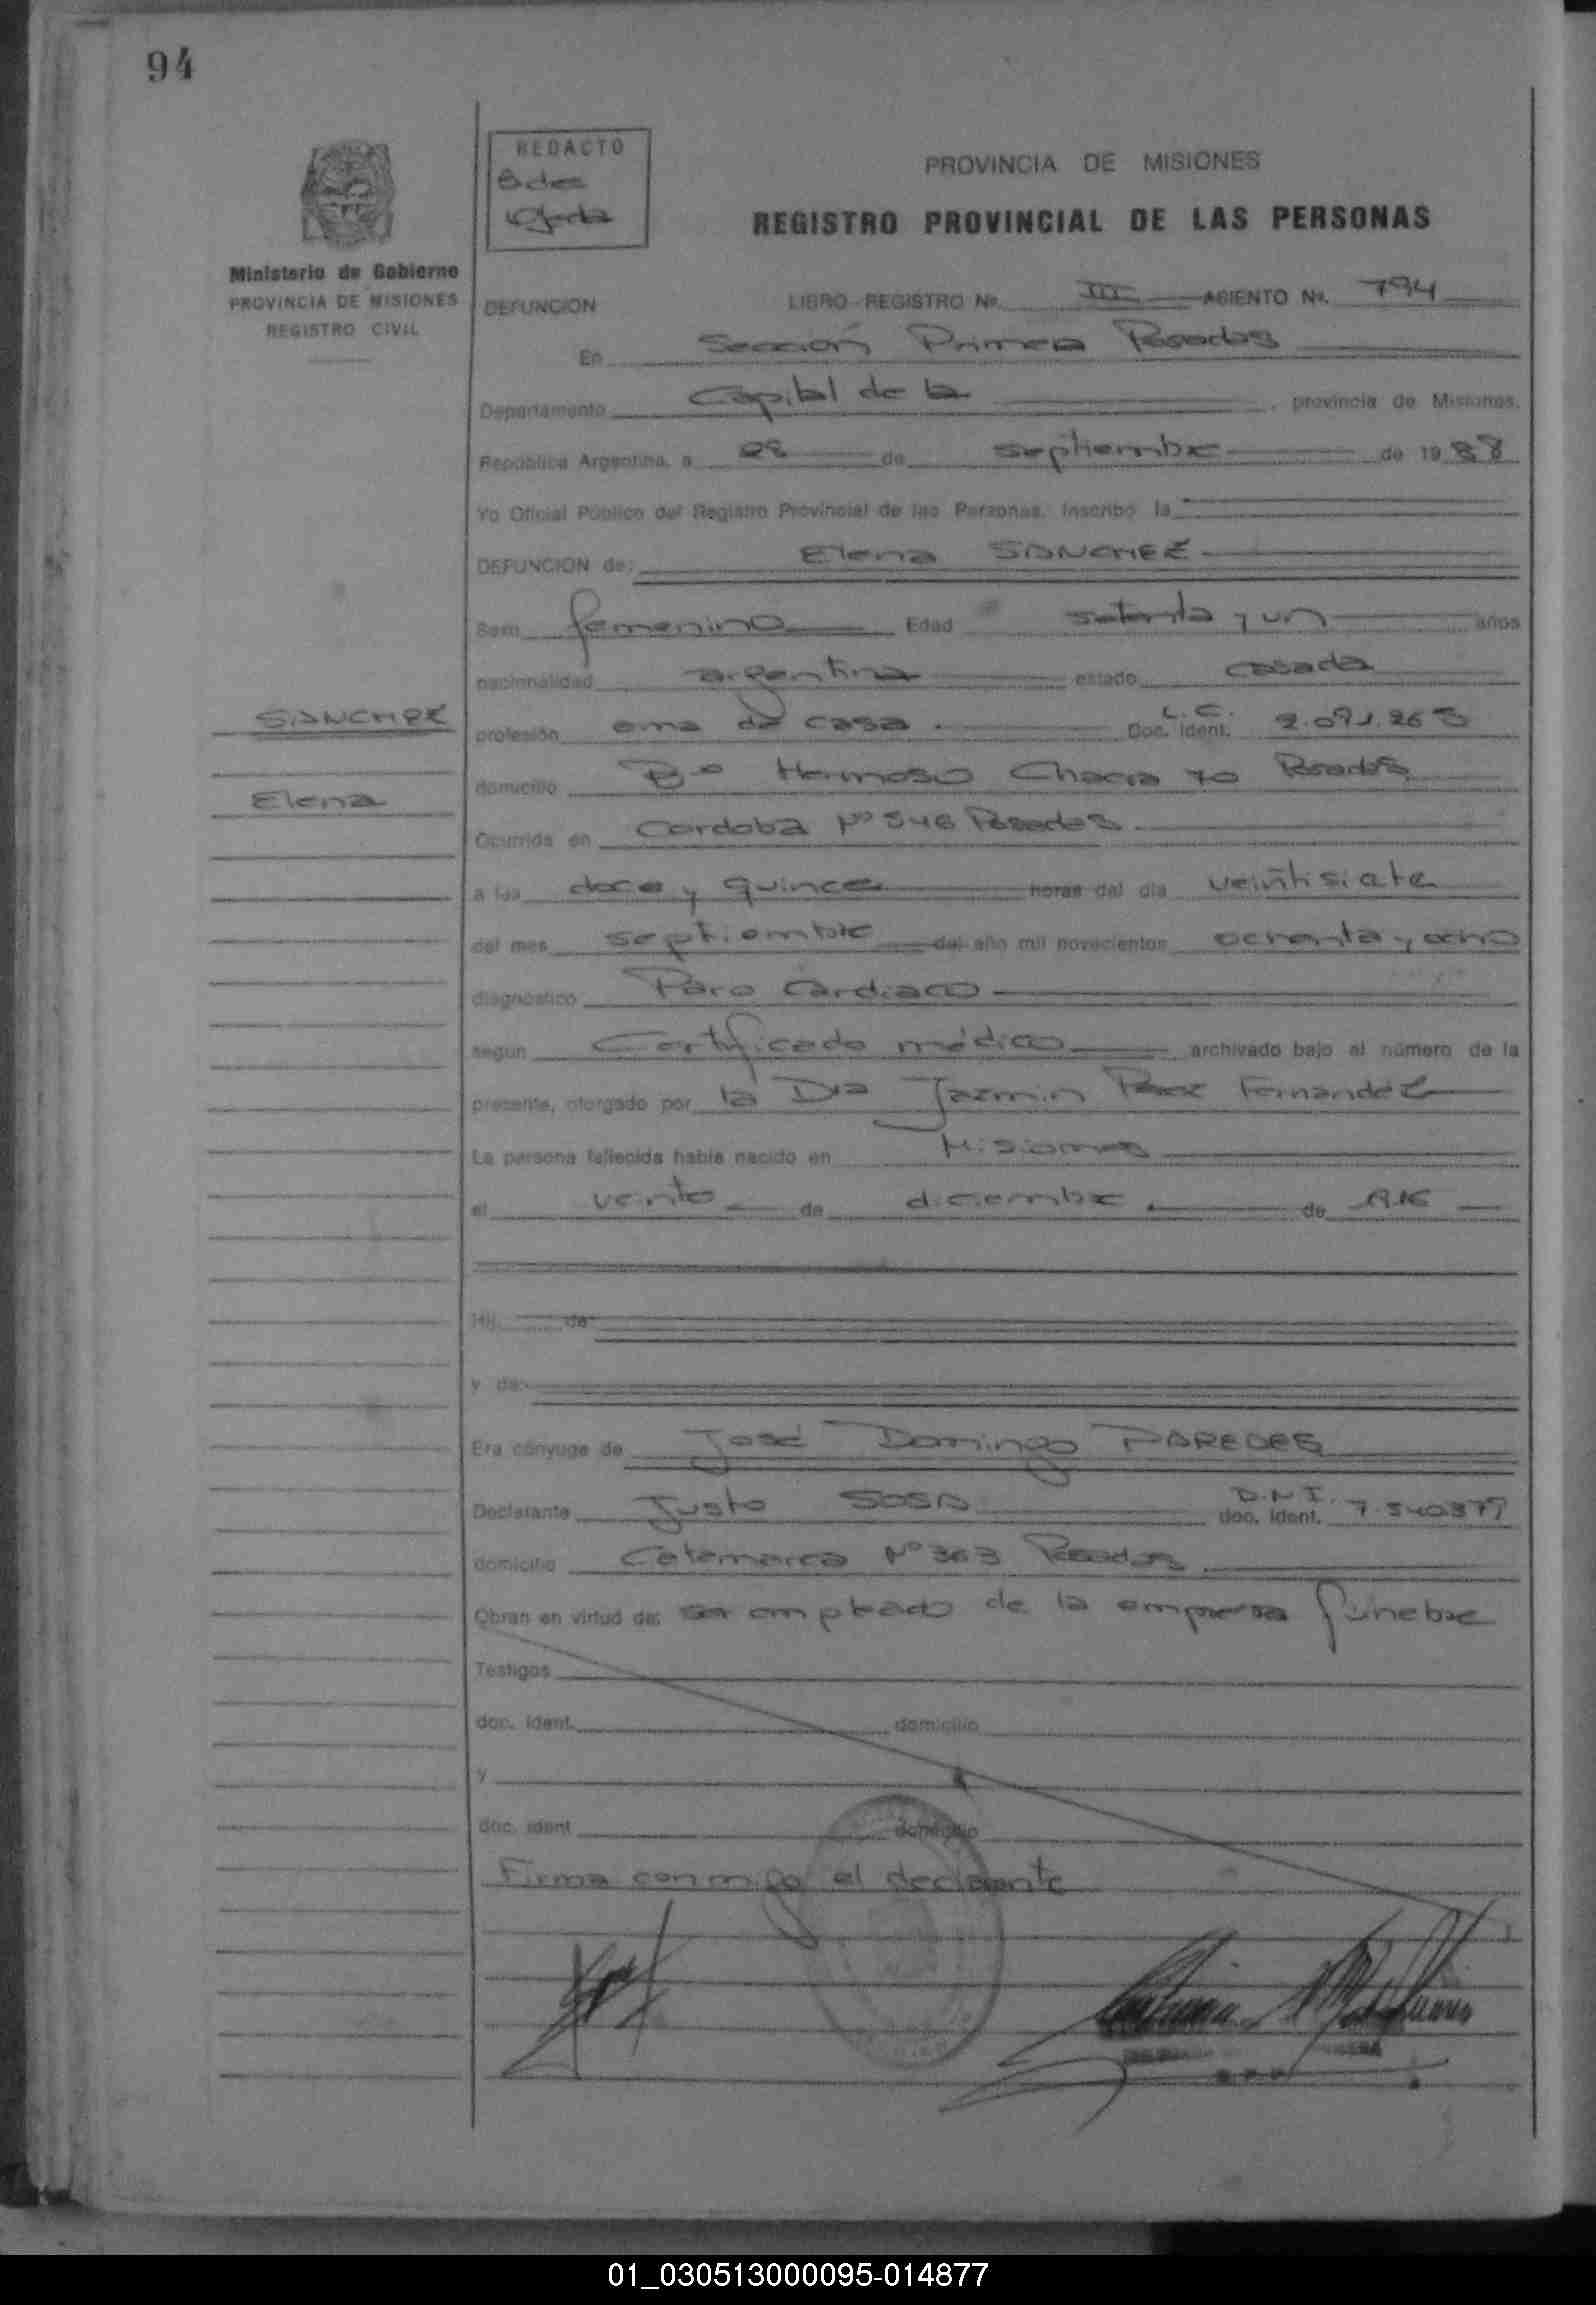 94
REDACTO
PROVINCIA DE MISIONES
REGISTRO PROVINCIAL DE LAS PERSONAS
Ministerio de Gobierno
PROVINCIA DE MISIONES
REGISTRO CIVIL
DEFUNCION LIBRO-REGISTRO Nº. III ASIENTO Nº. 794
En Sección Primera Posadas
Departamento Capital de la , provincia de Misiones,
República Argentina, a 28 de septiembre de 1988
Yo Oficial Público del Registro Provincial de las Personas, Inscribo la
DEFUNCION de: Elena SANCHEZ
Sexo femenino Edad setenta y un años
nacionalidad argentina estado casada
SANCHEZ
profesión ama de casa Doc. Ident. L.C. 2.091.268
domicilio Bº Hermoso Chacra 70 Posadas
Elena
Ocurrida en Cordoba Nº 546 Posadas
a las doce y quince horas del día veintisiete
del mes septiembre del año mil novecientos ochenta y ocho
diagnóstico Paro Cardiaco
según Certificado médico archivado bajo el número de la
presente, otorgado por la Dra Jazmin Fernandez
La persona fallecida había nacido en Misiones
el veinte de diciembre de 1916
Hij de
y de:
Era cónyuge de José Domingo PAREDES
Declarante Justo SOSA doc. Ident. D.N.I. 7.540377
domicilio Catamarca Nº 363 Posadas
Obran en virtud de: ser empleado de la empresa fúnebre
Testigos
doc. Ident. domicilio
y
doc. Ident domicilio
Firma conmigo el declarante
01_030513000095-014877